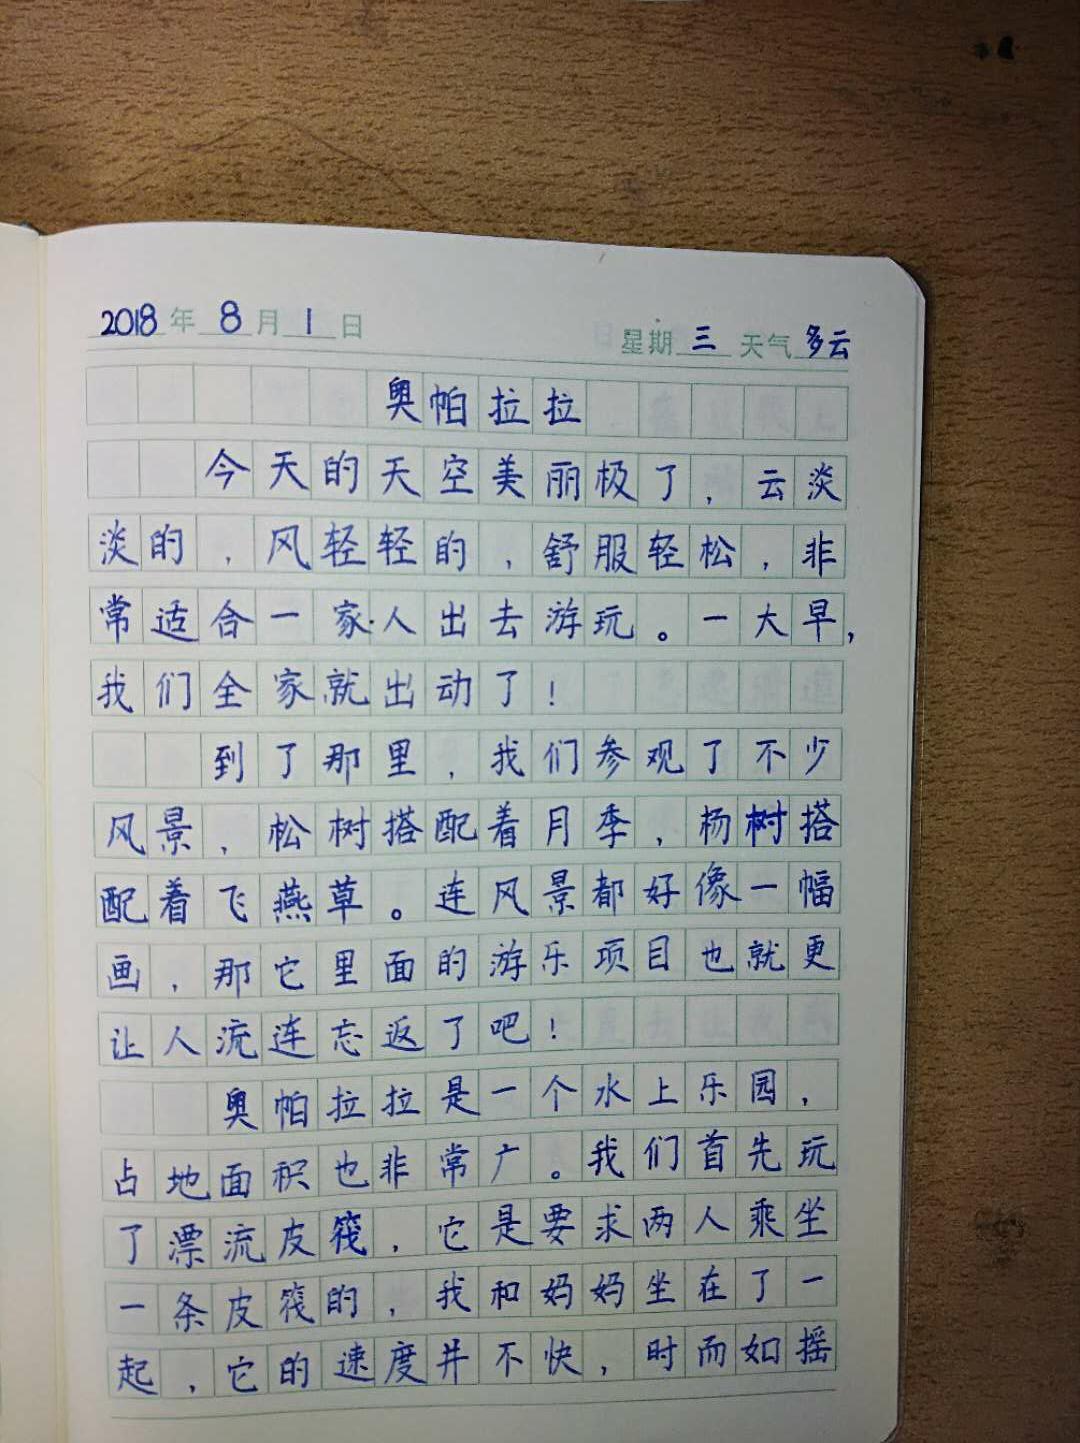 2018年8月1日 星期三 天气多云
奥帕拉拉
今天的天空美丽极了，云淡
淡的，风轻轻的，舒服轻松，非
常适合一家人出去游玩。一大早，
我们全家就出动了！
到了那里，我们参观了不少
风景，松树搭配着月季，杨树搭
配着飞燕草。连风景都好像一幅
画，那它里面的游乐项目也就更
让人流连忘返了吧！
奥帕拉拉是一个水上乐园，
占地面积也非常广。我们首先玩
了漂流皮筏，它是要求两人乘坐
一条皮筏的，我和妈妈坐在了一
起，它的速度并不快，时而如摇